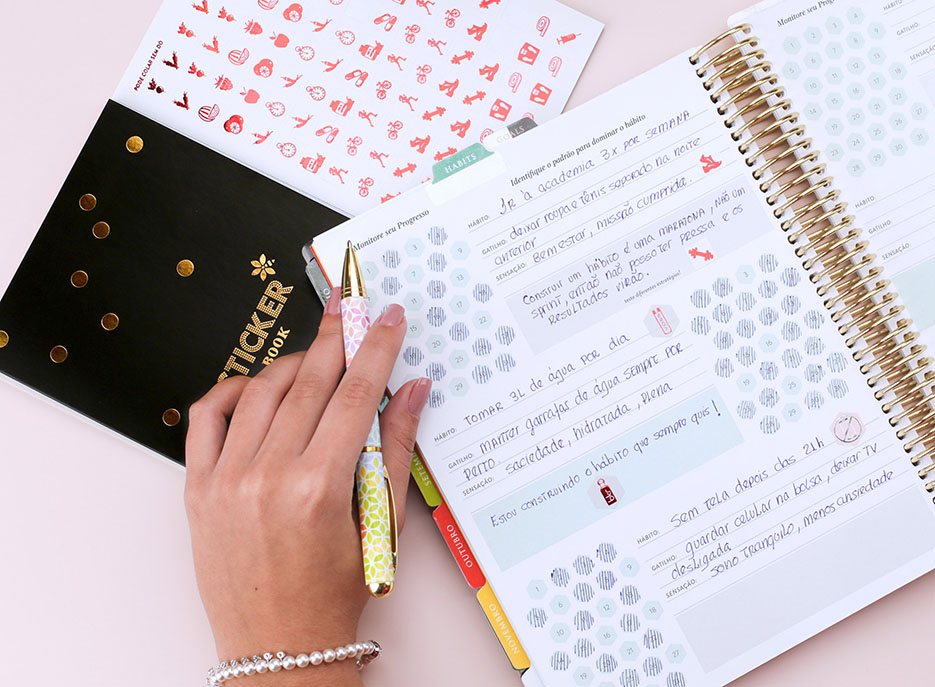 PODE COLAR SEM DÓ
STICKER
BOOK
HABITS
GOALS
Monitore seu Progresso
Identifique o padrão para dominar o hábito
HÁBITO: Ir à academia 3x por semana
GATILHO: deixar roupa e tênis separado na noite
anterior
SENSAÇÃO: Bem estar, missão cumprida.
Construir um hábito é uma maratona, não um
sprint, então não posso ter pressa e os
resultados virão.
teste diferentes estratégias!
3
7
11
17
20
25
29
HÁBITO: Tomar 3L de água por dia
GATILHO: Manter garrafas de água sempre por
perto
SENSAÇÃO: saciedade, hidratada, plena
Estou construindo o hábito que sempre quis!
HÁBITO: Sem tela depois das 21h
GATILHO: guardar celular na bolsa, deixar TV
desligada
SENSAÇÃO: sono tranquilo, menos ansiedade
OUTUBRO
NOVEMBRO
Monitore seu Progresso
HÁBITO:
GATILHO:
SENSAÇÃO:
HÁBITO:
GATILHO:
SENSAÇÃO: